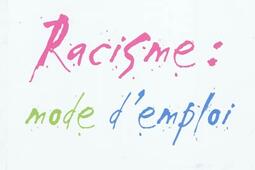 Racisme :
mode d'emploi